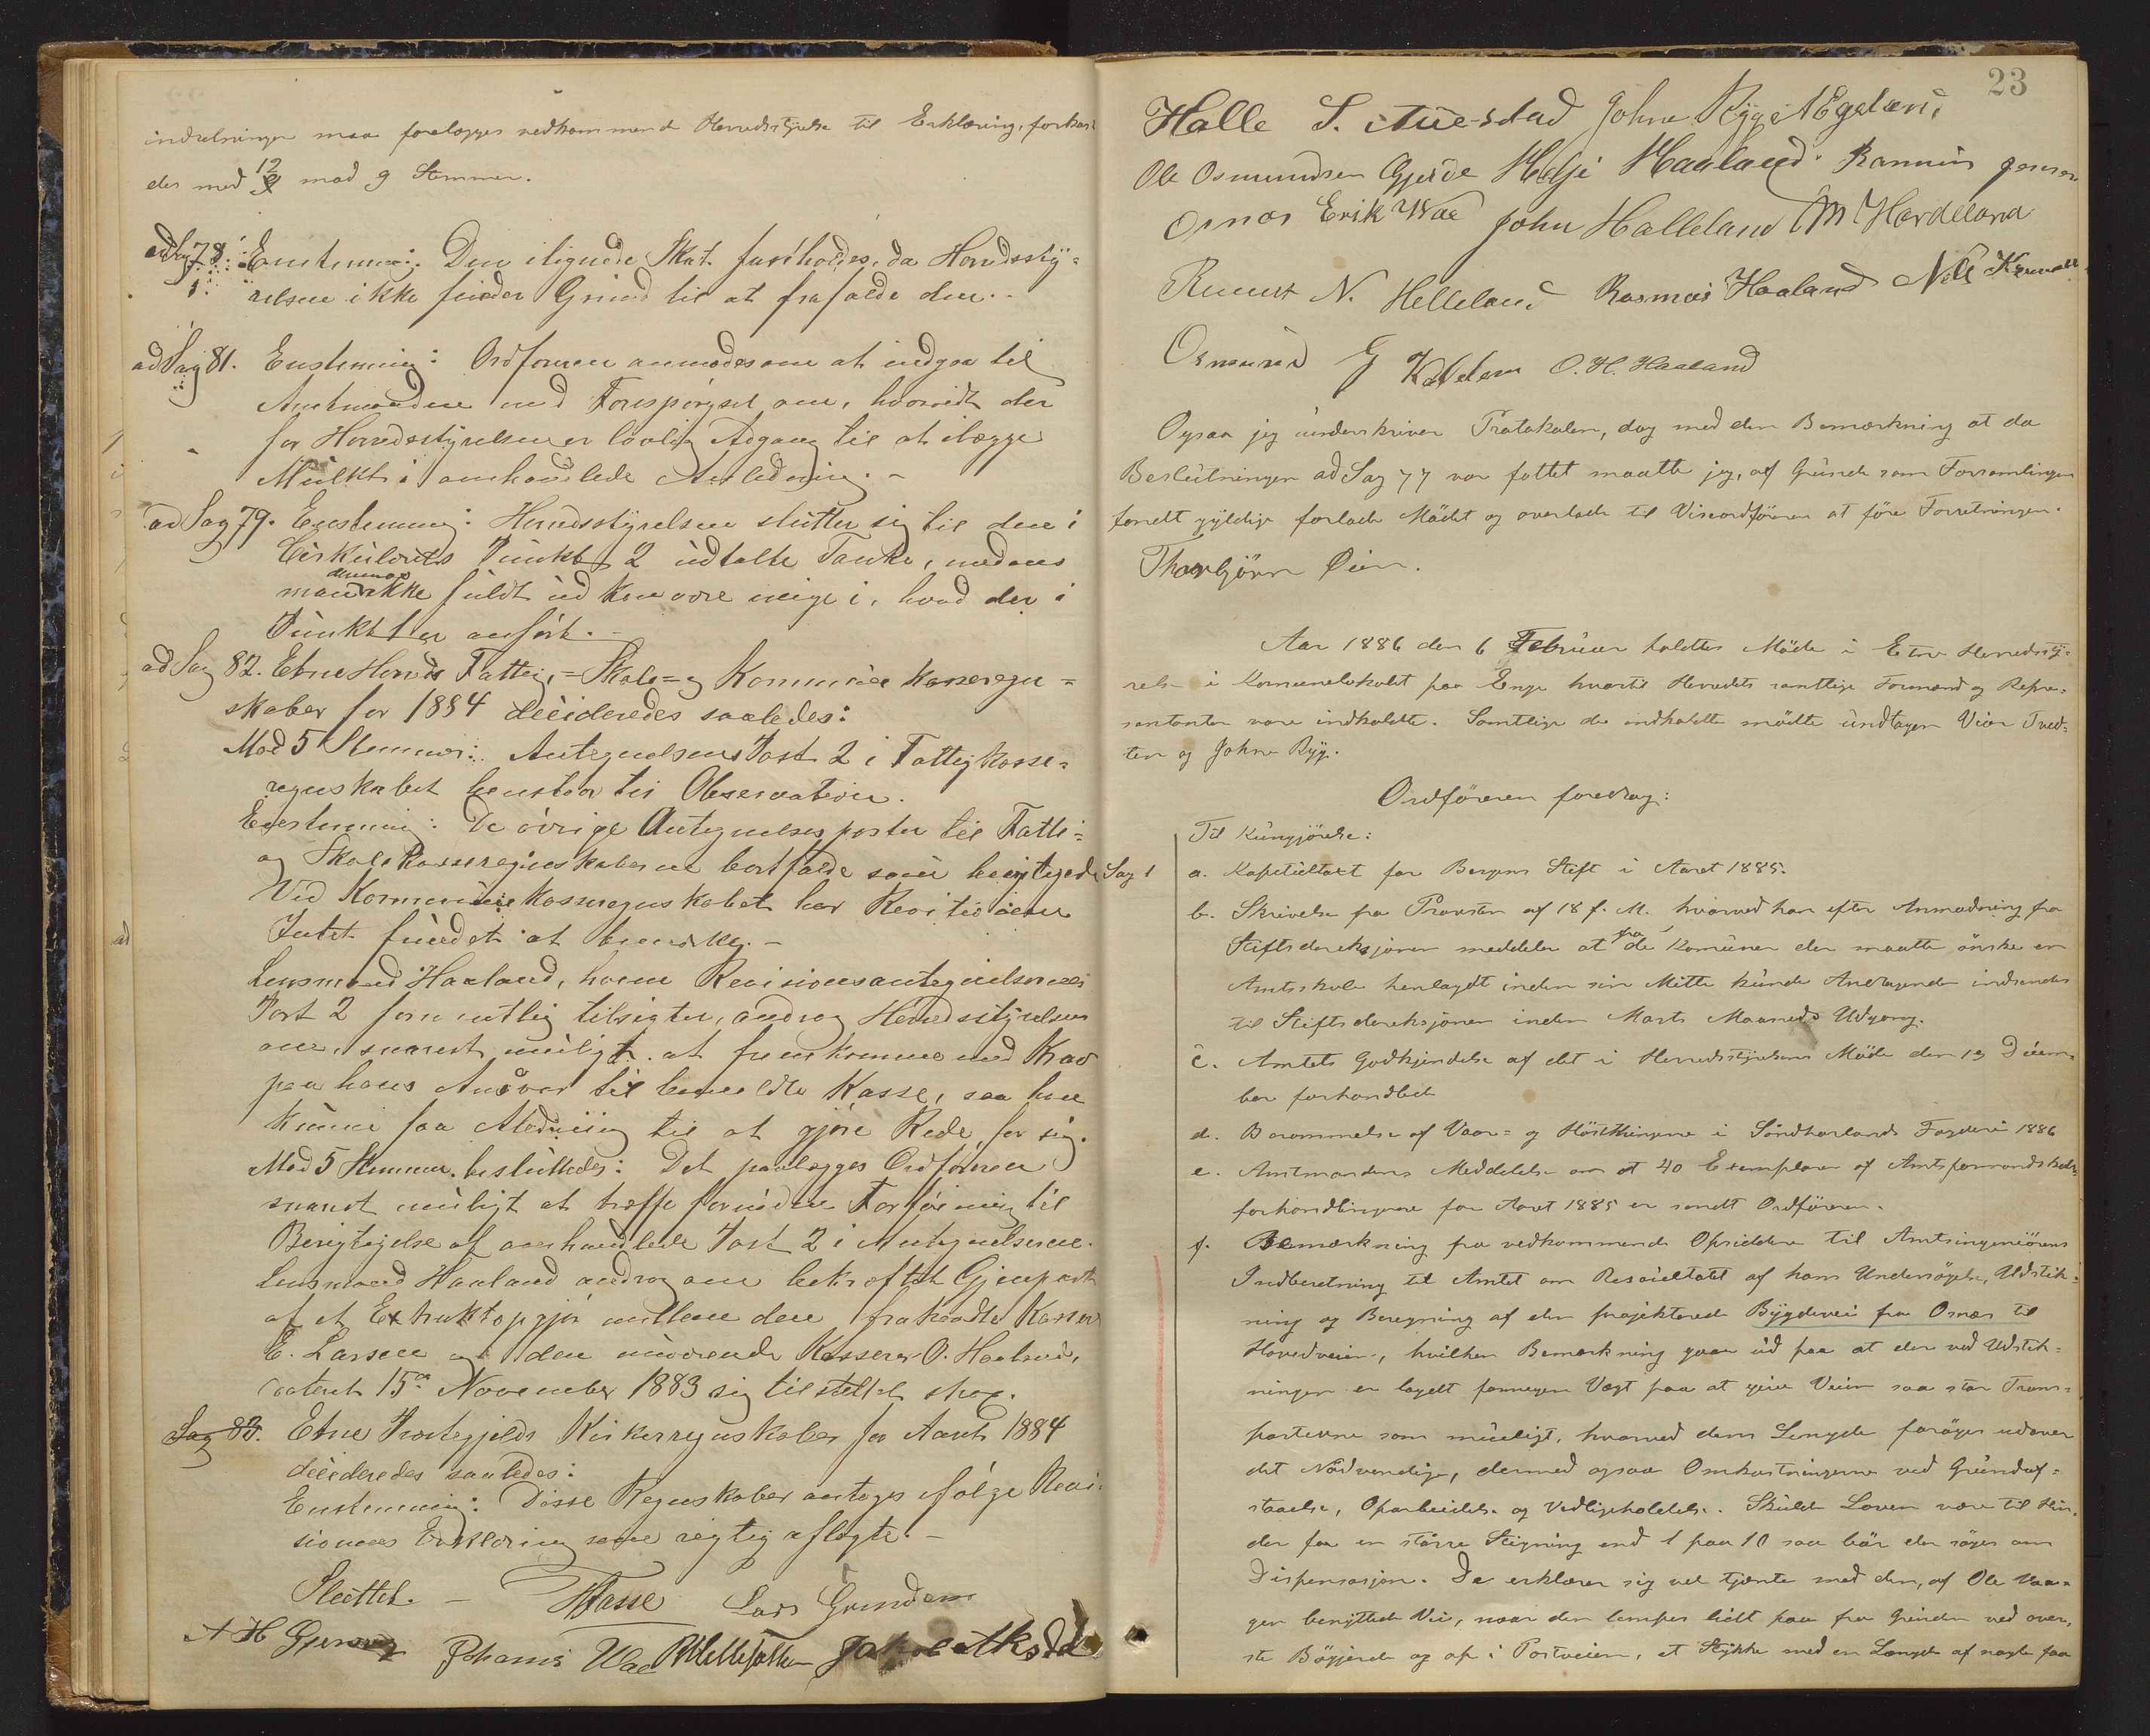 indretningen maa forelægges vedkommende Herredsstyrelse til Erklæring, forkas-
des med 12 mod 9 Stemmer.
ad Sag 78. Enstemmig: Den ilignede Skat fastholdes, da Herredssty=
relsen ikke finder Grund til at frafalde den.
ad Sag 81. Enstemmig: Ordføreren anmodes om at indgaa til
Amtmanden med Forespørgsel om, hvorvidt der
for Herredsstyrelsen er lovlig Adgang til at ilægge
Mulkt i omhandlede Anledning. -
ad Sag 79. Enstemmig: Herredsstyrelsen slutter sig til den i
Cirkulærets Punkt 2 udtalte Tanke, medens
man derimod ikke fuldt ud kan være enige i, hvad der i
Punkt 1 er anført. -
ad Sag 82. Etne Herreds Fattig=, Skole= og Kommunekasseregn=
skaber for 1884 desideredes saaledes:
Mod 5 Stemmer: Antegnelsens Post 2 i Fattigkasse=
regnskabet henstaar til Observation.
Enstemmig: De øvrige Antegnelsesposter til Fattig=
og Skolekasseregnskaberne bortfalde som berigtigede
Ved Kommunekasseregnskabet har Revisionen
Intet fundet at bemærke. -
Lensmand Haaland, hvem Revisionsantegnelsernes
Post 2 formentlig tilsigter, androg Herredsstyrelsen
om, snarest muligt at fremkomme med Krav
paa hans Ansvar til bemeldte Kasse, saa han
kunne faa Anledning til at gjøre Rede for sig.
Mod 5 Stemmer besluttedes: Det paalægges Ordføreren
snarest muligt at træffe fornøden Forføining til
Berigtigelse af omhandlede Post 2 i Antegnelserne.
Lensmand Haaland androg om bekræftet Gjenpart
af et Extraktopgjør mellem den fratraadte Kasserer
E. Larsen og den nuværende Kasserer O. Haaland,
dateret 15de November 1883 sig tilstillet strax.
Sag 83. Etne Præstegjelds Kirkeregnskaber for Aaret 1884
desideredes saaledes:
Enstemmig: Disse Regnskaber antoges ifølge Revi-
sionens Erklæring som rigtig aflagte. -
Sluttet. - Fasse Lars Grindem
A H Johannis Wae Milljesatter Jakob
23
Halle S. Johne Rygg A Egeland
Ole Osmundsen Gjerde Helje Haaland Rasmus Jensen
Ornes Erik Wae John Halleland M Hardeland
Knut N. Helleland Rasmus Haaland Nils
Osmund G Kaldern O. H. Haaland
Ogsaa jeg underskriver Protokolen, dog med den Bemærkning at da
Beslutningen ad Sag 77 var fattet maatte jeg, af Grunde som Forsamlingen
fandt gyldige forlade Mødet og overlade til Viseordføreren at føre Forretningen.
Thorbjørn Øien.
Aar 1886 den 6 Februar holdtes Møde i Etne Herredssty=
relse i Komunelokalet paa Enge hvortil Herredets samtlige Formænd og Repre=
sentanter vare indkaldte. Samtlige de indkaldte mødte undtagen Tved=
ten og Johne Ryg.
Ordføreren foredrog:
Til Kungjørelse:
Sag 1
a. Kapiteltaxt for Bergens Stift i Aaret 1885.
b. Skrivelse fra Provsten af 18 f. M. hvorved han efter Anmodning fra
Stiftsdireksjonen meddeler at fra de Komuner der maatte ønske en
Amtsskole henlagdt inden sin Midte kunde Andragender indsendes
til Stiftsdireksjonen inden Marts Maaneds Udgang.
c. Amtets Godkjendelse af det i Herredsstyrelsens Møde den 19 Decem=
ber forhandlede
d. Berammelse af Vaar= og Høstthingene i Søndhorlands Fogderi 1886
e. Amtmandens Meddelelse om at 40 Exemplarer af Amtsformandskabs=
forhandlingerne for Aaret 1885 er sendt Ordføreren.
f. Bemærkning fra vedkommende Opsiddere til Amtsingeniørens
Indberetning til Amtet om Resultatet af hans Undersøgelse, Udstik=
ning og Beregning af den projekterede Bygdevei fra Ornes til
Hovedveien, hvilken Bemærkning gaar ud paa at der ved Udstik=
ningen er lagdt formegen Vægt paa at give Veien saa stor Trans=
portevne som muligt, hvorved dens Længde forøges udover
det Nødvendige, dermed ogsaa Omkostningerne ved Grundaf=
staaelse, Oparbeidelse og Vedligeholdelse. Skulde Loven være til Hin=
der for en større Stigning end 1 paa 10 saa bør der søges om
Dispensasjon. De erklærer sig vel tjente med den, af Ole Vaa=
gen benyttede Vei, naar den lempes lidt paa fra Grinden ved øver=
ste Bøgjerde og op i Postveien, et Stykke med en Længde af nogle faa